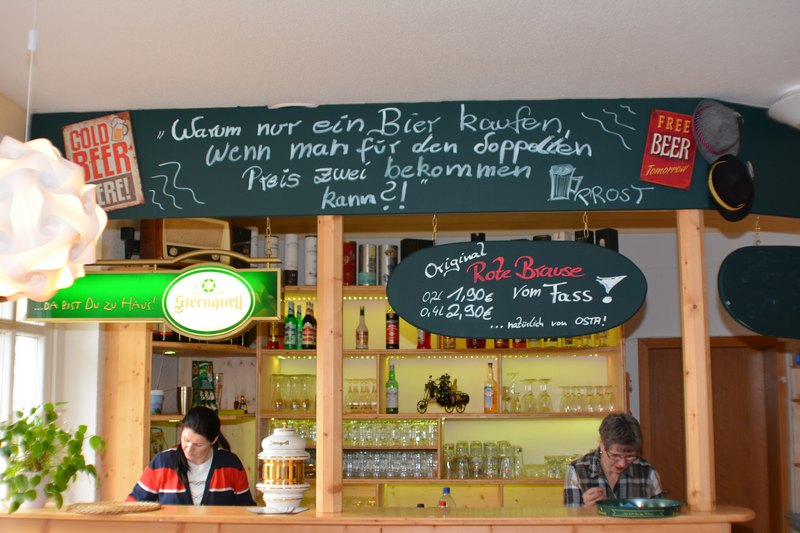 COLD
BEER
HERE!
„Warum nur ein Bier kaufen,
wenn man für den doppelten
Preis zwei bekommen
kann?!"
PROST
FREE
BEER
Tomorrow
...DA BIST DU ZU HAUS!
Sternquell
Original
Rote Brause
0,2l 1,90€ vom Fass!
0,4l 2,90€
...natürlich von OSTA!